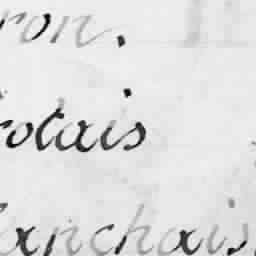 ron.
rolais
lanchais